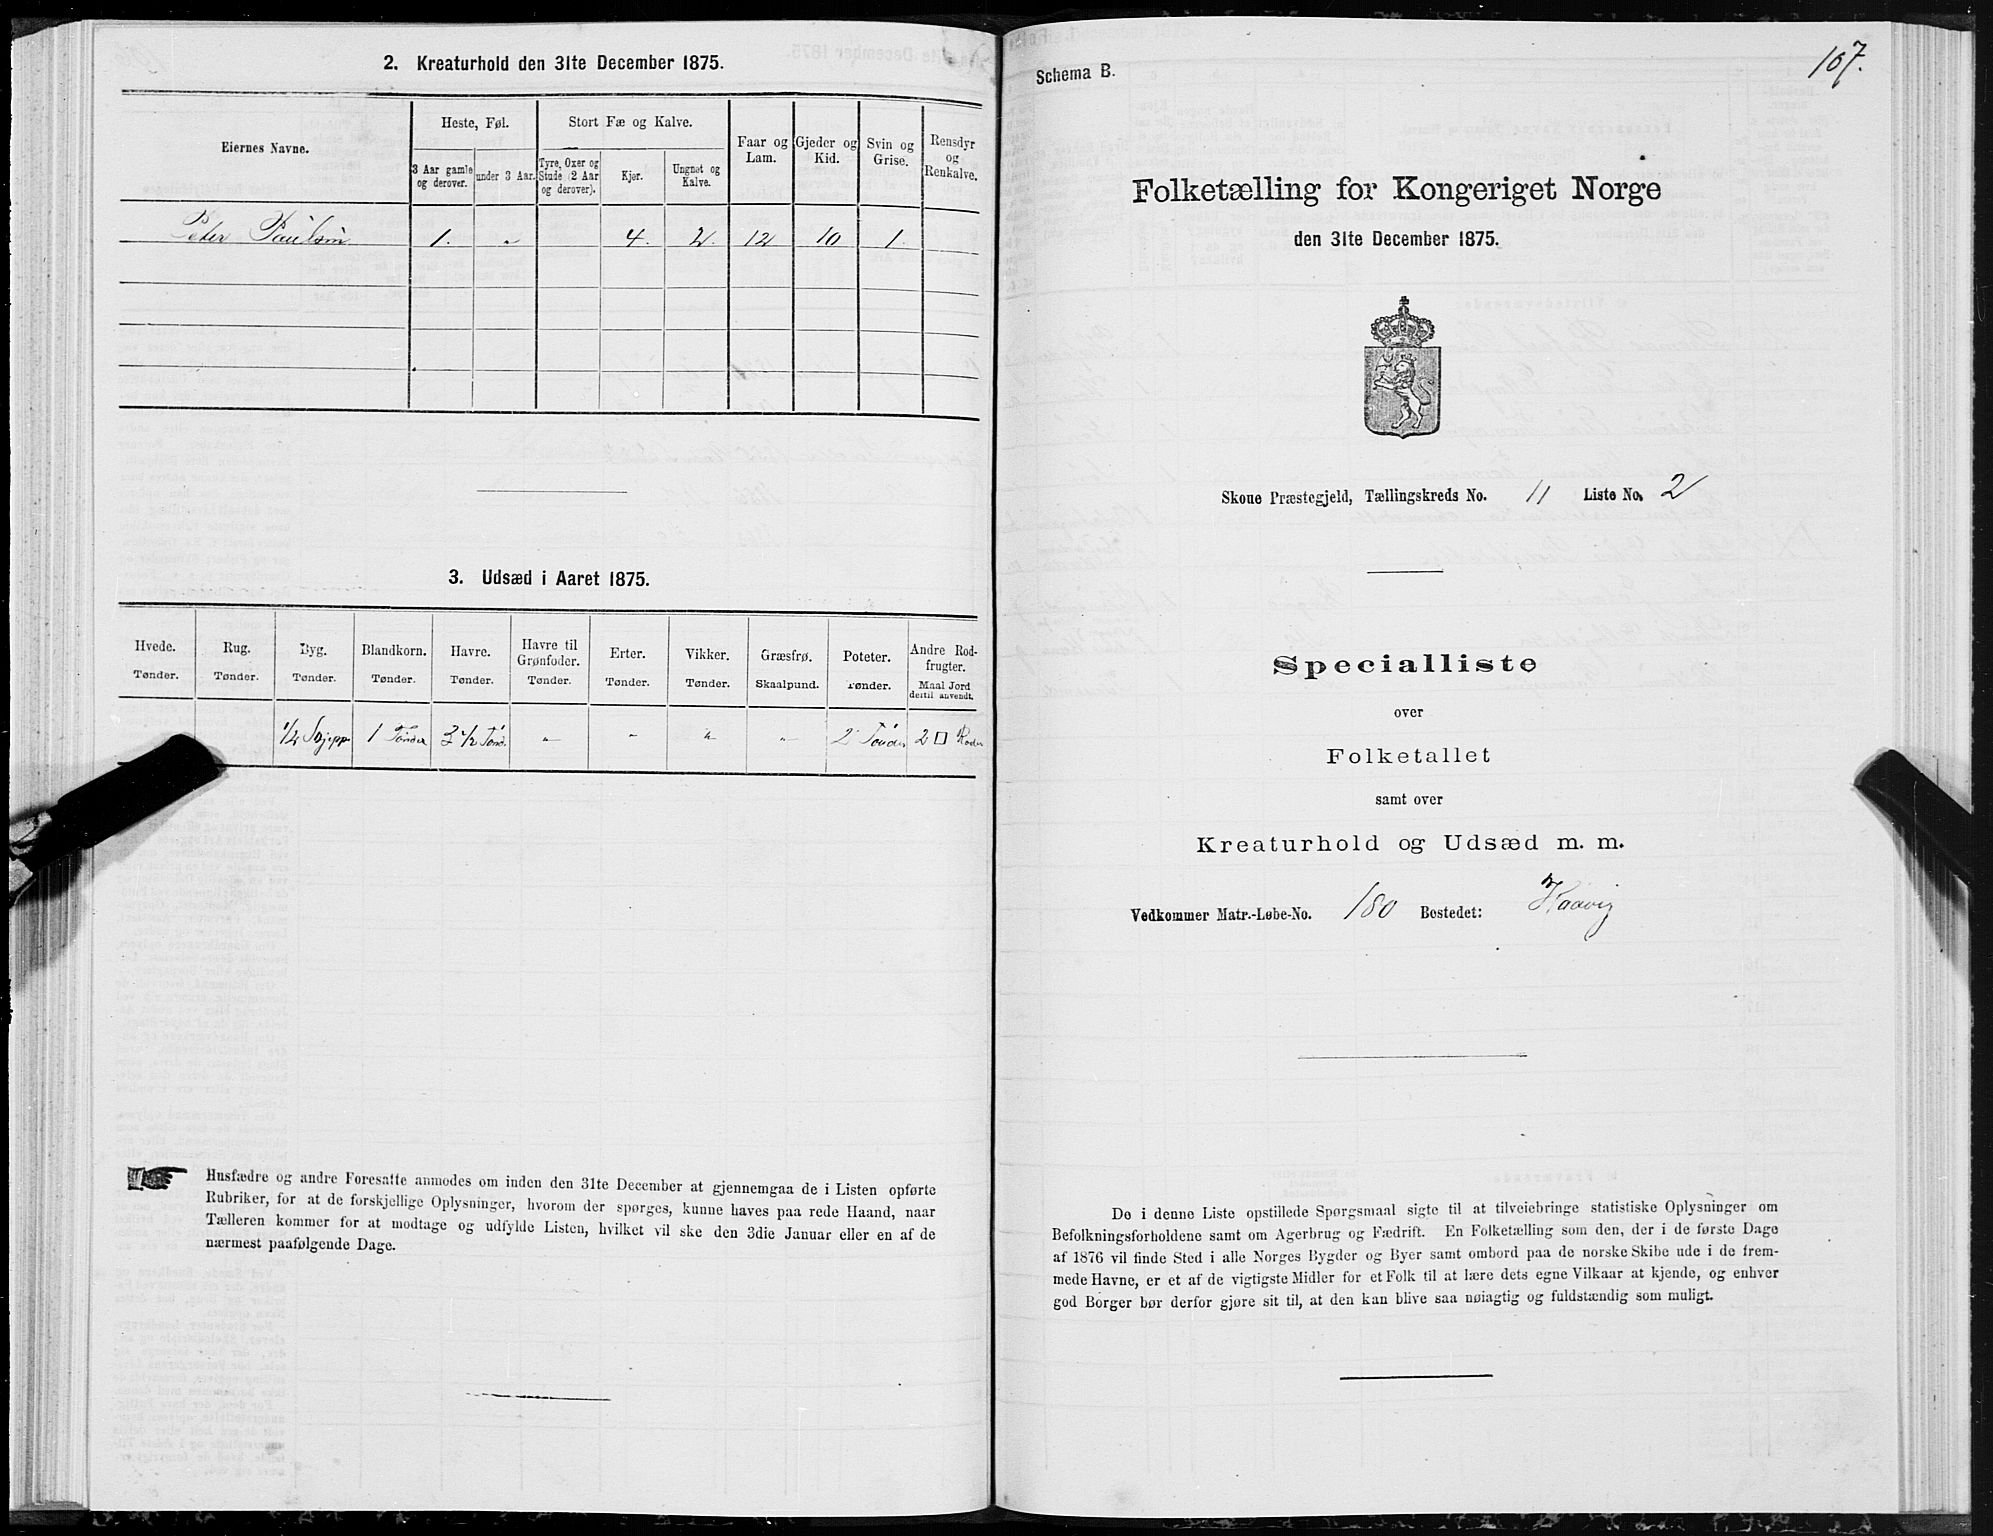 2. Kreaturhold den 31te December 1875.
Eiernes Navne.
Heste, Føl.
Stort Fæ og Kalve.
Faar og Lam.
Gjeder og Kid.
Svin og Grise.
Rensdyr og Renkalve.
3 Aar gamle og derover.
under 3 Aar.
Tyre, Oxer og Stude (2 Aar og derover).
Kjør.
Ungnøt og Kalve.
Peter Paulsen 1. „ 4. 2. 12 10 1.
3. Udsæd i Aaret 1875.
Hvede. Rug. Byg. Blandkorn. Havre. Havre til Grønfoder. Erter. Vikker. Græsfrø. Poteter. Andre Rodfrugter.
Tønder. Tønder. Tønder. Tønder. Tønder. Tønder. Tønder. Tønder. Skaalpund. Tønder. Maal Jord dertil anvendt.
1 Tønder 3 ½ Tønd. „ „ „ „ 2 Tønder 2 □ Roder
Husfædre og andre Foresatte anmodes om inden den 31te December at gjennemgaa de i Listen opførte
Rubriker, for at de forskjellige Oplysninger, hvorom der spørges, kunne haves paa rede Haand, naar
Tælleren kommer for at modtage og udfylde Listen, hvilket vil ske den 3die Januar eller en af de
nærmest paafølgende Dage.
Schema B.
107.
Folketælling for Kongeriget Norge
den 31te December 1875.
Skoue Præstegjeld, Tællingskreds No. 11 Liste No. 2
Specialliste
over
Folketallet
samt over
Kreaturhold og Udsæd m. m.
Vedkommer Matr.-Løbe-No. 180 Bostedet: Haavig
De i denne Liste opstillede Spørgsmaal sigte til at tilveiebringe statistiske Oplysninger om
Befolkningsforholdene samt om Agerbrug og Fædrift. En Folketælling som den, der i de første Dage
af 1876 vil finde Sted i alle Norges Bygder og Byer samt ombord paa de norske Skibe ude i de frem-
mede Havne, er et af de vigtigste Midler for et Folk til at lære dets egne Vilkaar at kjende, og enhver
god Borger bør derfor gjøre sit til, at den kan blive saa nøiagtig og fuldstændig som muligt.